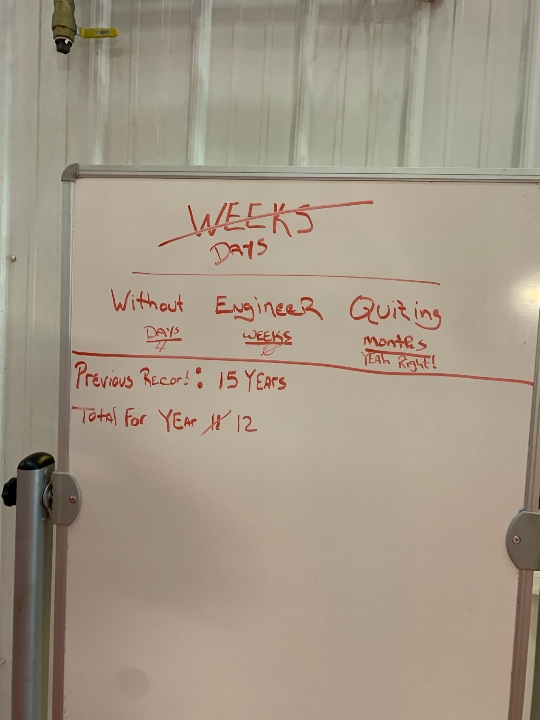 WEEKS
DAYS
Without Engineer Quiting
DAYS WEEKS months
4 0 YEAh Right!
Previous Record: 15 YEARS
Total For YEAR 11 12